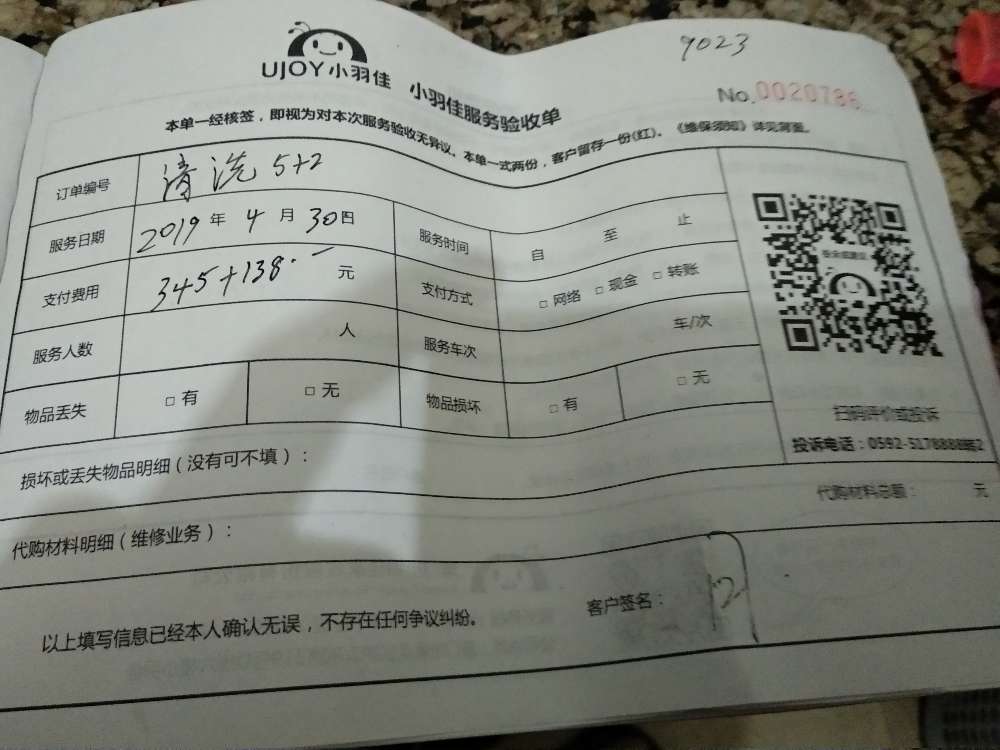 9023
UJOY小羽佳 小羽佳服务验收单
No.0020786
本单一经核签，即视为对本次服务验收无异议。本单一式两份，客户留存一份(红)。《维保须知》详见背面。
订单编号 清洗 5+2
服务日期 2019年4月30日 服务时间 自 至 止
支付费用 345+138.- 元 支付方式 □网络 □现金 □转账
服务人数 人 服务车次 车/次
物品丢失 □有 □无 物品损坏 □有 □无
扫码评价或投诉
投诉电话：0592-5178888转2
损坏或丢失物品明细（没有可不填）：
代购材料总额： 元
代购材料明细（维修业务）：
以上填写信息已经本人确认无误，不存在任何争议纠纷。 客户签名：